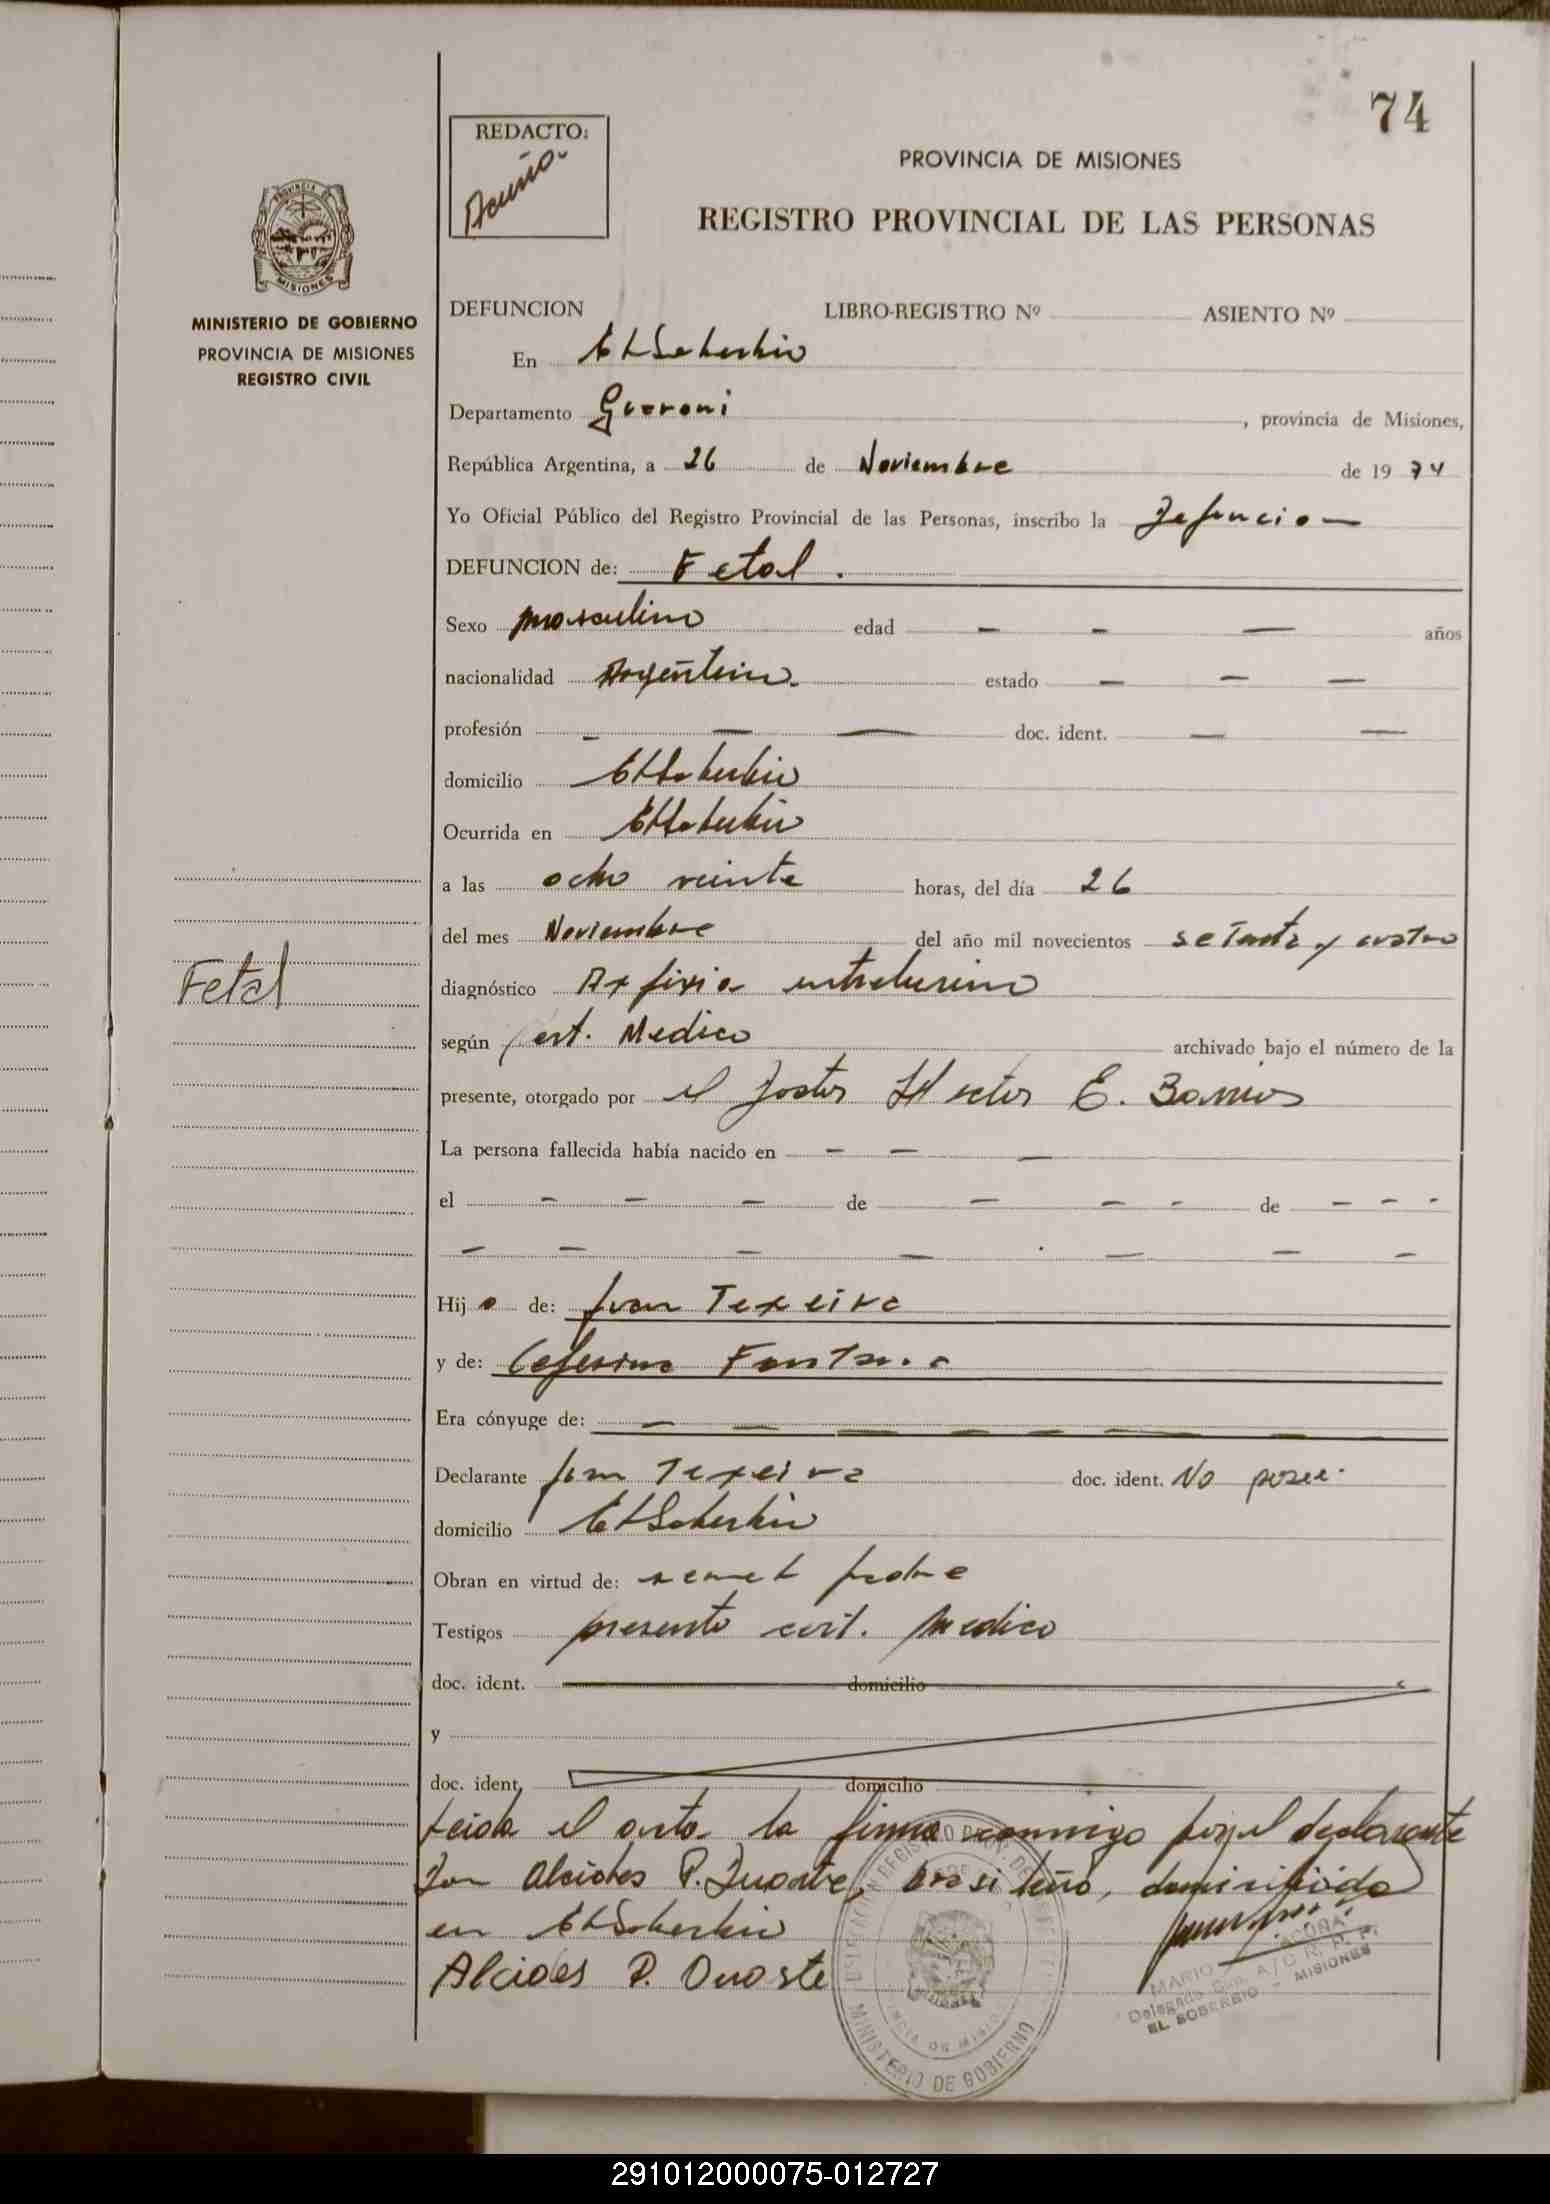 74
REDACTO:
Acuña
PROVINCIA DE MISIONES
REGISTRO PROVINCIAL DE LAS PERSONAS
PROVINCIA DE
MISIONES
MINISTERIO DE GOBIERNO
PROVINCIA DE MISIONES
REGISTRO CIVIL
DEFUNCION LIBRO-REGISTRO Nº ASIENTO Nº
En El Soberbio
Departamento Guarani, provincia de Misiones,
República Argentina, a 26 de Noviembre de 1974
Yo Oficial Público del Registro Provincial de las Personas, inscribo la Defuncion
DEFUNCION de: Fetal.
Sexo masculino edad - - - años
nacionalidad Argentino. estado - - -
profesión - - - doc. ident. - -
domicilio El Soberbio
Ocurrida en El Soberbio
a las ocho veinte horas, del día 26
del mes Noviembre del año mil novecientos setenta y cuatro
Fetal
diagnóstico Asfixia intrauterino
según Cert. Medico archivado bajo el número de la
presente, otorgado por el Doctor Hector E. Barrios
La persona fallecida había nacido en - - -
el - - - de - - - de - - -
- - - - - - -
Hijo de: Juan Texeira
y de: Ceferina Fontana
Era cónyuge de: - - - - - - - -
Declarante Juan Texeira doc. ident. No posee.
domicilio El Soberbio
Obran en virtud de: ser el padre
Testigos presento cert. Medico
doc. ident. domicilio
y
doc. ident. domicilio
Leida el acta la firma conmigo por el declarante
Don Alcides P. Duarte, brasileño, domiciliado
en El Soberbio
Alcides P. Duarte
MINISTERIO DE GOBIERNO
MARIO ACUÑA
EL SOBERBIO - MISIONES
291012000075-012727